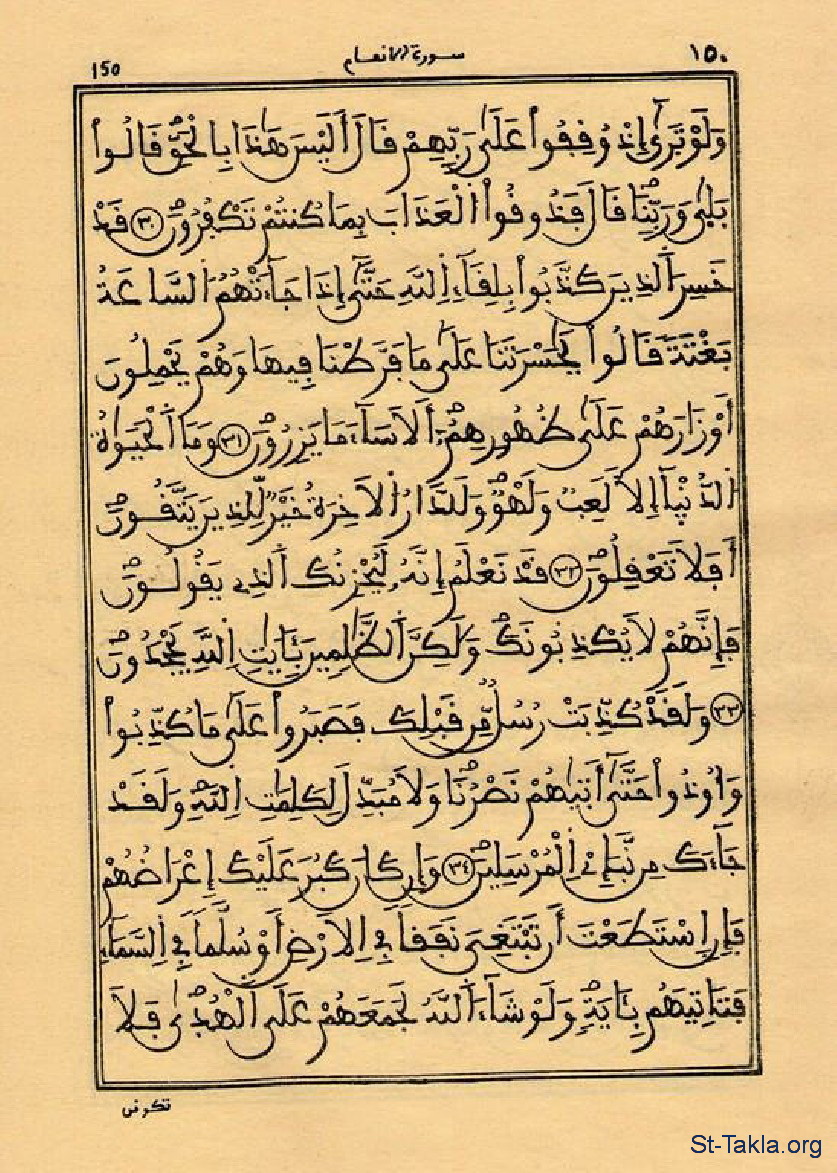 ١٥٠ سورة الانعام 150
وَلَوْ تَرَىٰ إِذْ وُقِفُوا۟ عَلَىٰ رَبِّهِمْ قَالَ أَلَيْسَ هَٰذَا بِالْحَقِّ قَالُوا۟
بَلَىٰ وَرَبِّنَا قَالَ فَذُوقُوا۟ الْعَذَابَ بِمَا كُنتُمْ تَكْفُرُونَ ٣٠ قَدْ
خَسِرَ الَّذِينَ كَذَّبُوا۟ بِلِقَآءِ اللَّهِ حَتَّىٰ إِذَا جَآءَتْهُمُ السَّاعَةُ
بَغْتَةً قَالُوا۟ يَٰحَسْرَتَنَا عَلَىٰ مَا فَرَّطْنَا فِيهَا وَهُمْ يَحْمِلُونَ
أَوْزَارَهُمْ عَلَىٰ ظُهُورِهِمْ أَلَا سَآءَ مَا يَزِرُونَ ٣١ وَمَا الْحَيَوٰةُ
الدُّنْيَآ إِلَّا لَعِبٌ وَلَهْوٌ وَلَلدَّارُ الَاخِرَةُ خَيْرٌ لِّلَّذِينَ يَتَّقُونَ
أَفَلَا تَعْقِلُونَ ٣٢ قَدْ نَعْلَمُ إِنَّهُ لَيُحْزِنُكَ الَّذِي يَقُولُونَ
فَإِنَّهُمْ لَا يُكْذِبُونَكَ وَلَٰكِنَّ الظَّٰلِمِينَ بِـَٔايَٰتِ اللَّهِ يَجْحَدُونَ
٣٣ وَلَقَدْ كُذِّبَتْ رُسُلٌ مِّن قَبْلِكَ فَصَبَرُوا۟ عَلَىٰ مَا كُذِّبُوا۟
وَأُوذُوا۟ حَتَّىٰ أَتَىٰهُمْ نَصْرُنَا وَلَا مُبَدِّلَ لِكَلِمَٰتِ اللَّهِ وَلَقَدْ
جَآءَكَ مِن نَّبَإِىْ الْمُرْسَلِينَ ٣٤ وَإِن كَانَ كَبُرَ عَلَيْكَ إِعْرَاضُهُمْ
فَإِنِ اسْتَطَعْتَ أَن تَبْتَغِيَ نَفَقًا فِي الَارْضِ أَوْ سُلَّمًا فِي السَّمَآءِ
فَتَاتِيَهُم بِـَٔايَةٍ وَلَوْ شَآءَ اللَّهُ لَجَمَعَهُمْ عَلَى الْهُدَىٰ فَلَا
تكونن
St-Takla.org